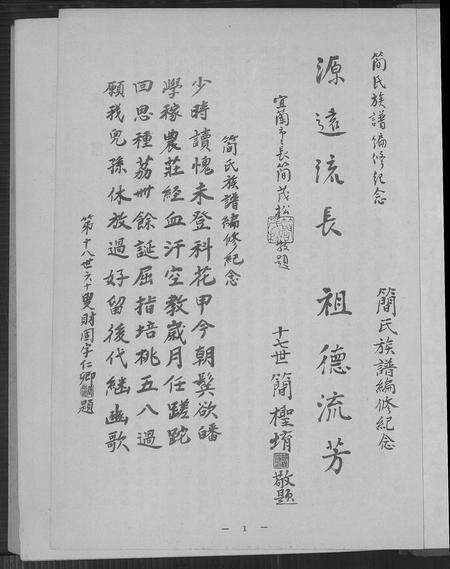 簡氏族譜編修紀念
源遠流長
宜蘭市長簡茂松敬題
簡氏族譜編修紀念
祖德流芳
十七世簡檉堉敬題
簡氏族譜編修紀念
少時讀愧未登科花甲今朝鬢欲皤
學稼農莊經血汗空教歲月任蹉跎
回思種荔卅餘誕屈指培桃五八過
願我兒孫休放過好留後代繼幽歌
第十八世六十叟財固字仁卿題
— 1 —